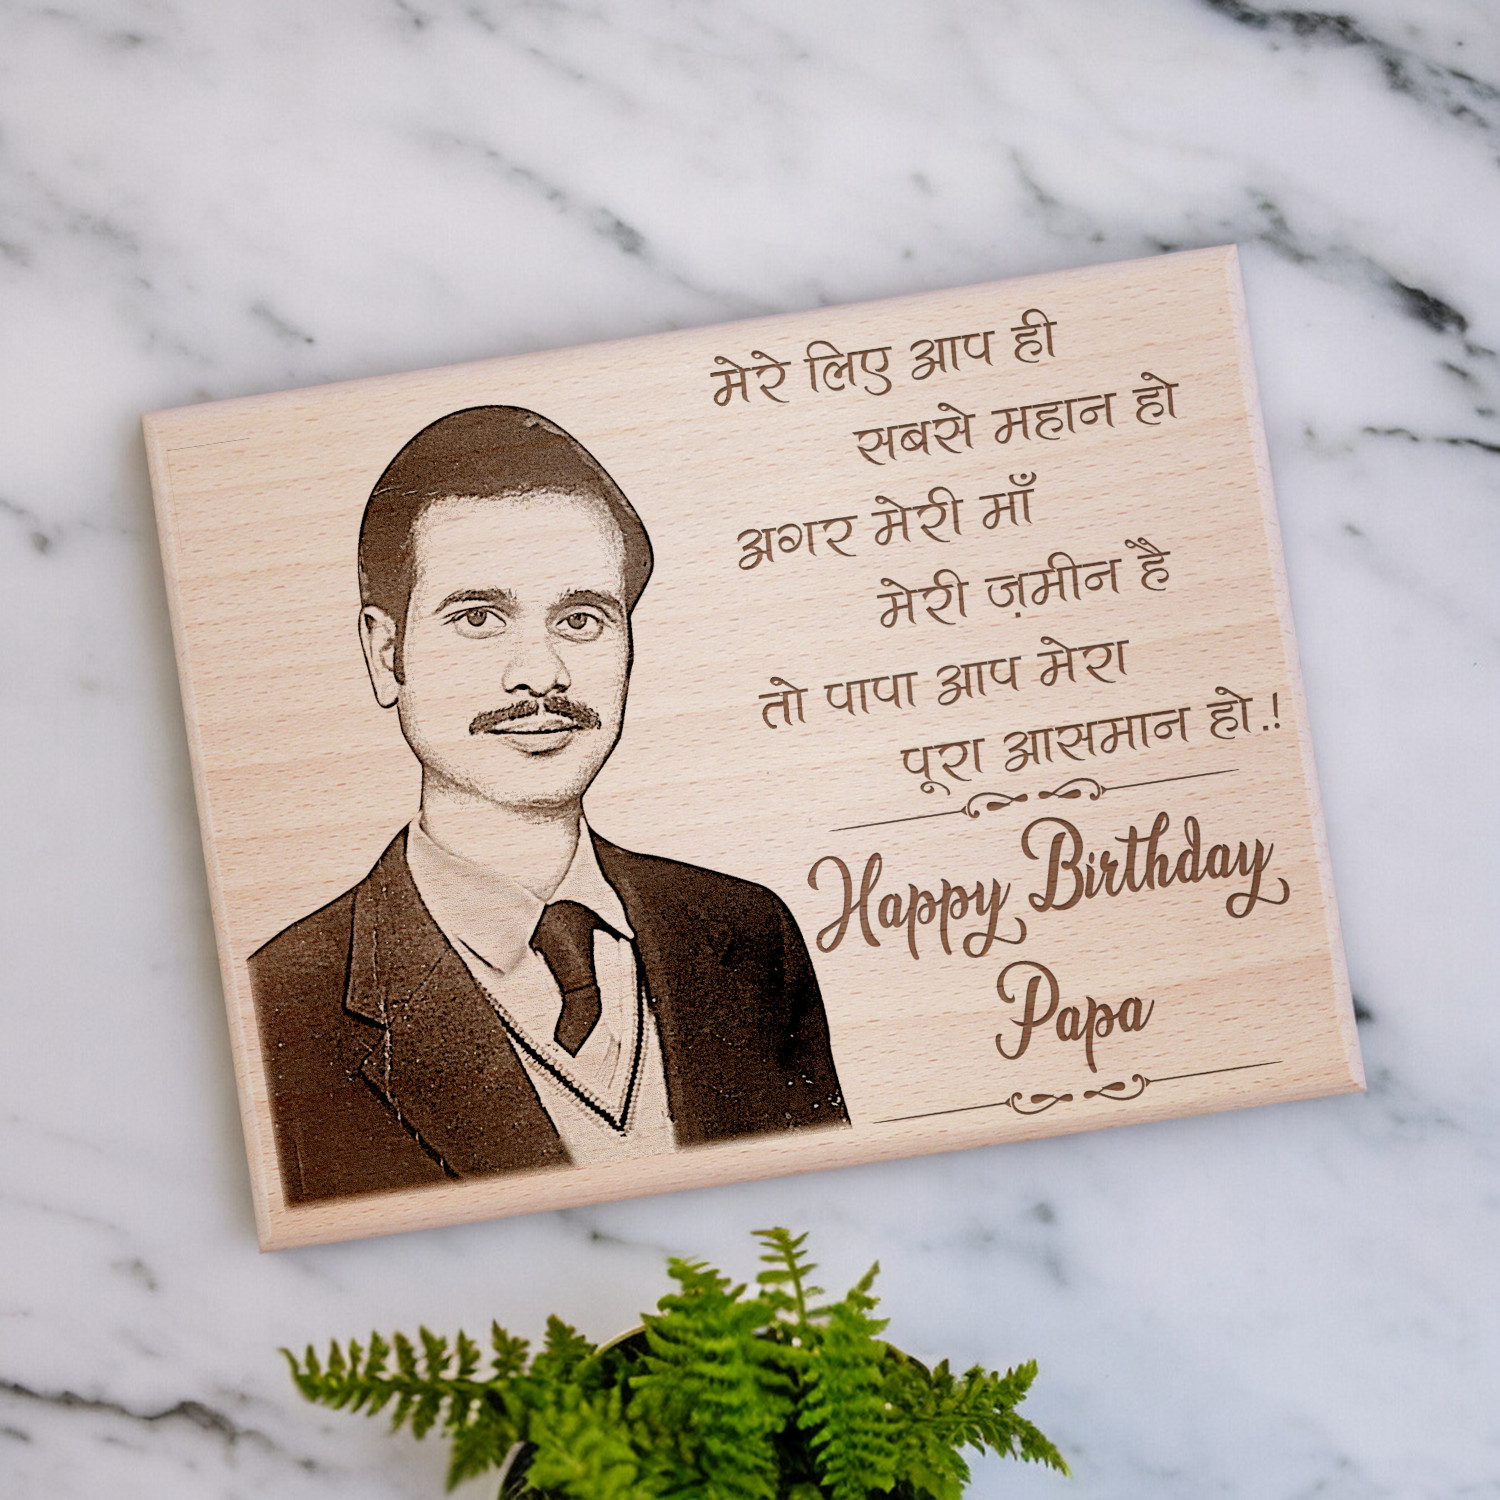 मेरे लिए आप ही
सबसे महान हो
अगर मेरी माँ
मेरी ज़मीन है
तो पापा आप मेरा
पूरा आसमान हो.!
Happy Birthday
Papa